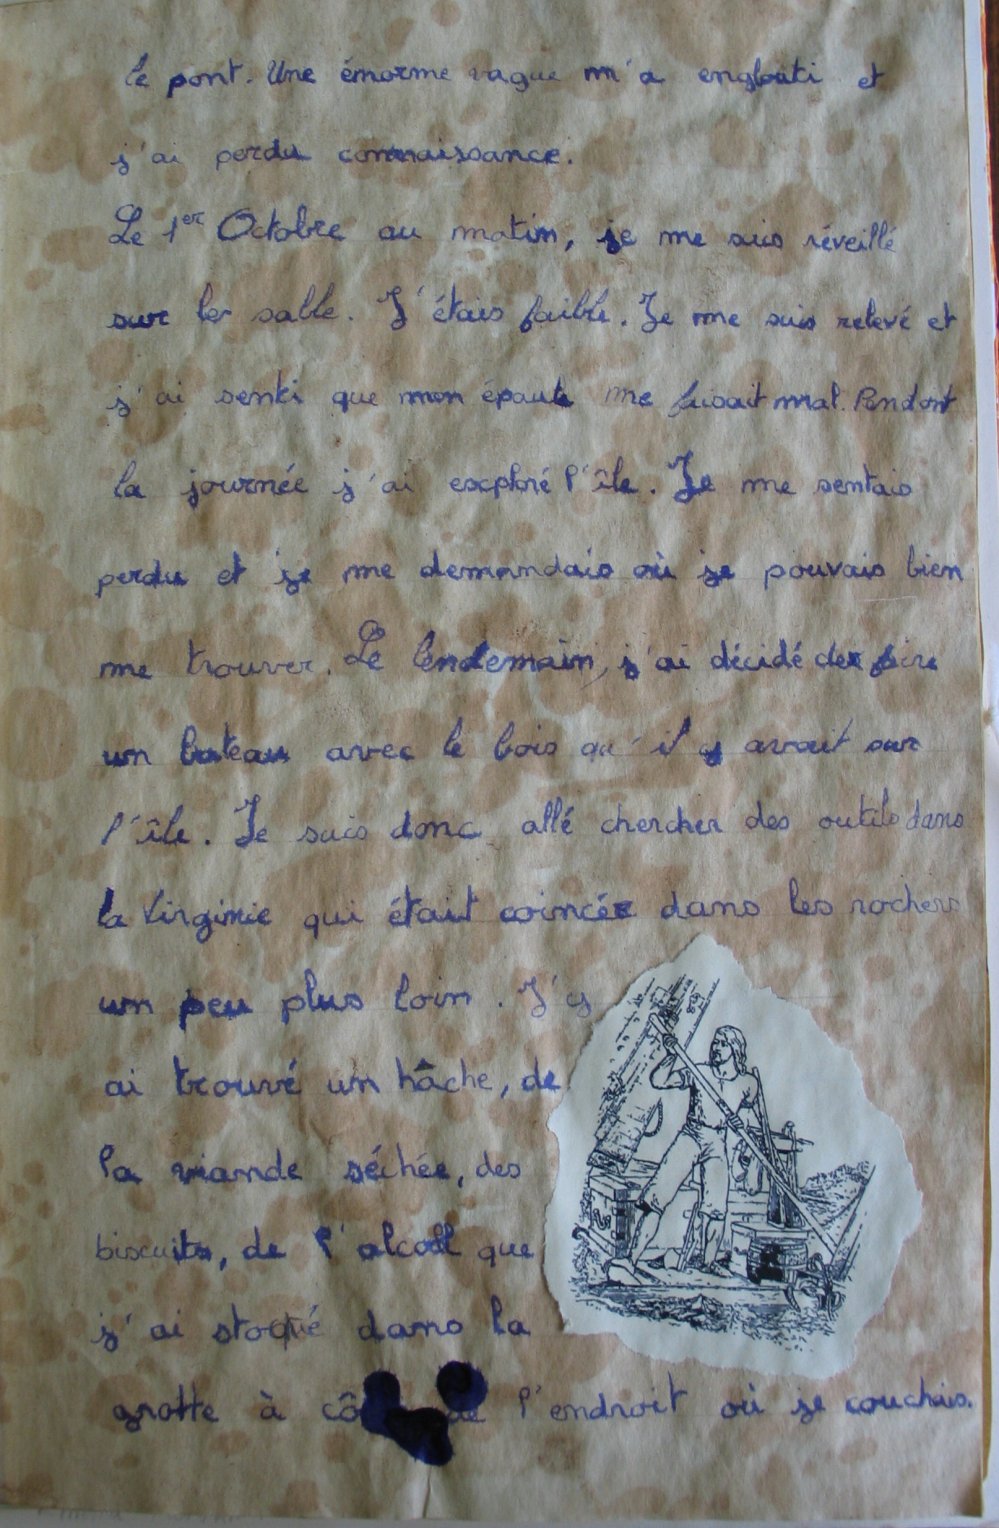 le pont. Une énorme vague m'a engloúti et
j'ai perdu connaissance.
Le 1er Octobre au matin, je me suis réveillé
sur le sable. J'étais faible. Je me suis relevé et
j'ai senti que mon épaule me faisait mal. Pendant
la journée j'ai exploré l'île. Je me sentais
perdu et je me demandais où je pouvais bien
me trouver. Le lendemain, j'ai décidé de faire
un bateau avec le bois qu'il y avait sur
l'île. Je suis donc allé chercher des outils dans
la Virginie qui était coincée dans les rochers
un peu plus loin. J'y
ai trouvé un hâche, de
la viande séchée, des
biscuits, de l'alcool que
j'ai stoqué dans la
grotte à cô de l'endroit où je couchais.